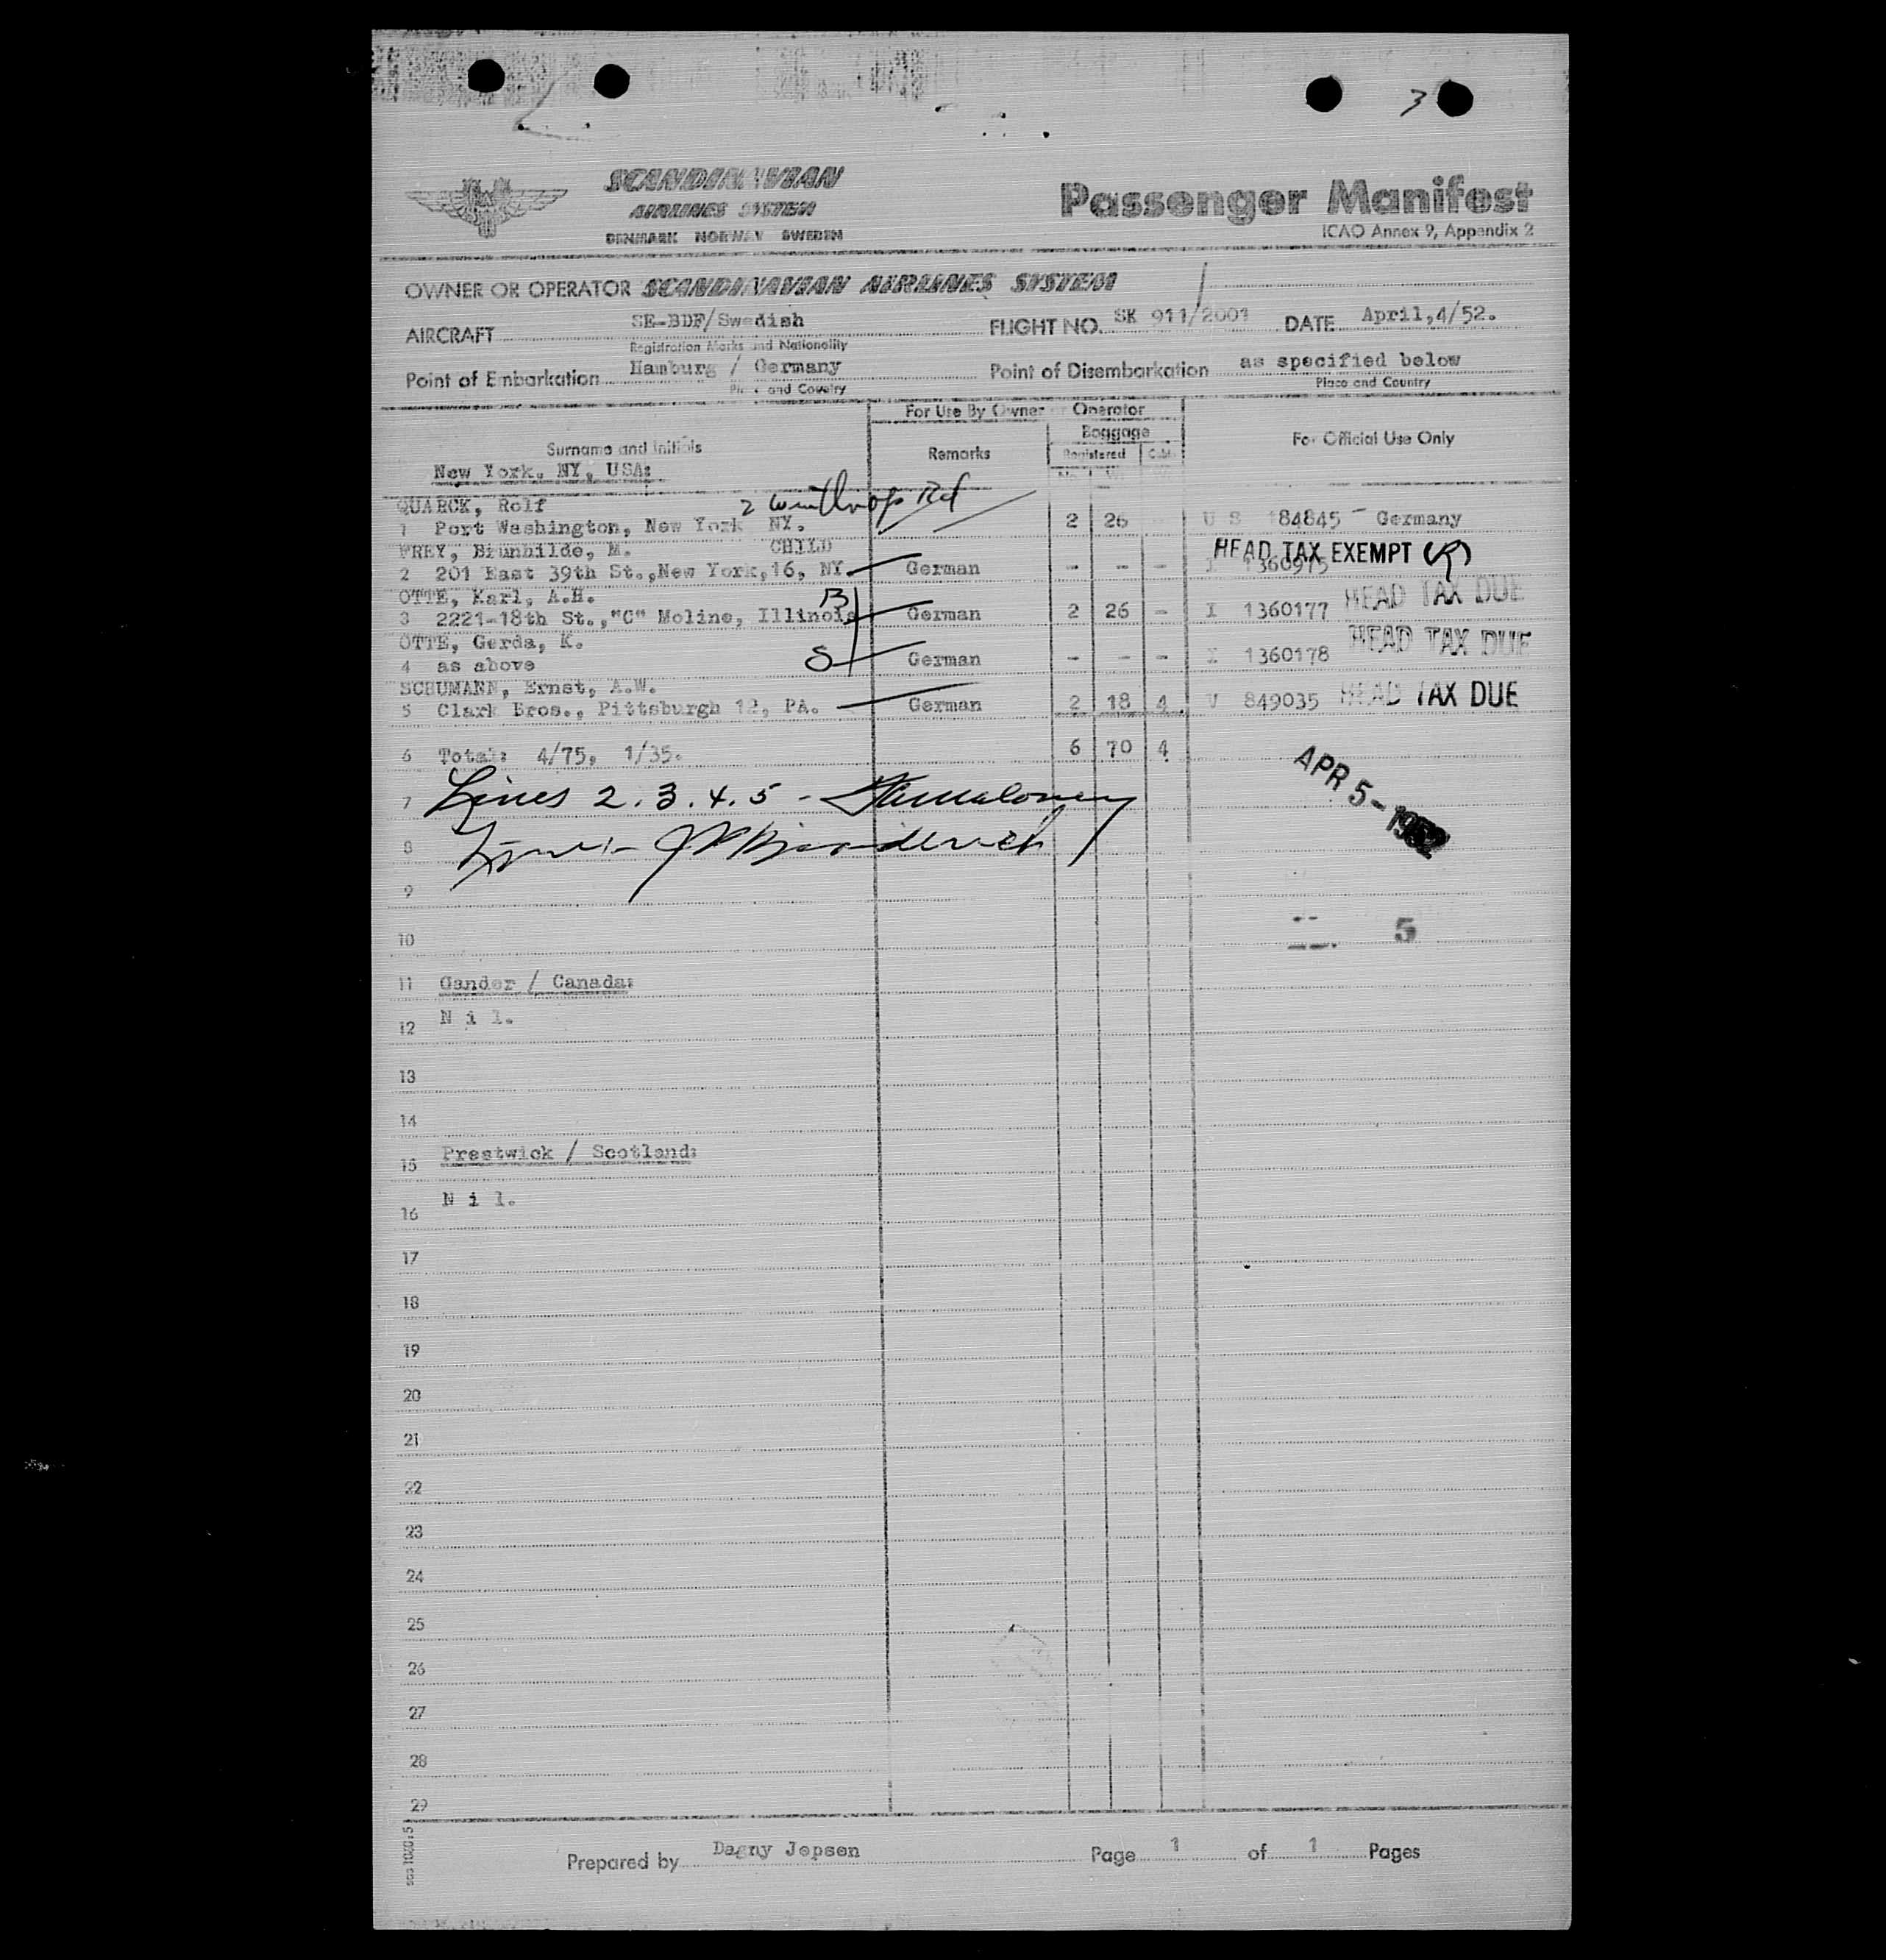 3
SCANDINAVIAN
AIRLINES SYSTEM
DENMARK NORWAY SWEDEN
Passenger Manifest
ICAO Annex 9, Appendix 2
OWNER OR OPERATOR SCANDINAVIAN AIRLINES SYSTEM
AIRCRAFT SE-BDF/Swedish FLIGHT NO. SK 911/2001 DATE April,4/52.
Registration Marks and Nationality
Point of Embarkation Hamburg / Germany Point of Disembarkation as specified below
Place and Country Place and Country
For Use By Owner or Operator
Surname and Initials Remarks Baggage For Official Use Only
Registered
New York, NY, USA:
QUARCK, Rolf 2 Winthrop Rd
1 Port Washington, New York NY. 2 26 U S 184845 - Germany
FREY, Brunhilde, M. CHILD HEAD TAX EXEMPT
2 201 East 39th St.,New York,16, NY. German - - - I 1360975
OTTE, Karl, A.H. B
3 2221-18th St.,"C" Moline, Illinois German 2 26 - I 1360177 HEAD TAX DUE
OTTE, Gerda, K. S
4 as above German - - - I 1360178 HEAD TAX DUE
SCHUMANN, Ernst, A.W.
5 Clark Bros., Pittsburgh 12, PA. German 2 18 4 V 849035 HEAD TAX DUE
6 Total: 4/75, 1/35. 6 70 4
APR 5-1952
7 Lines 2.3.4.5 -
8
9
5
10
11 Gander / Canada:
12 N i l.
13
14
15 Prestwick / Scotland:
16 N i l.
17
18
19
20
21
22
23
24
25
26
27
28
29
Prepared by Dagny Jepsen Page 1 of 1 Pages